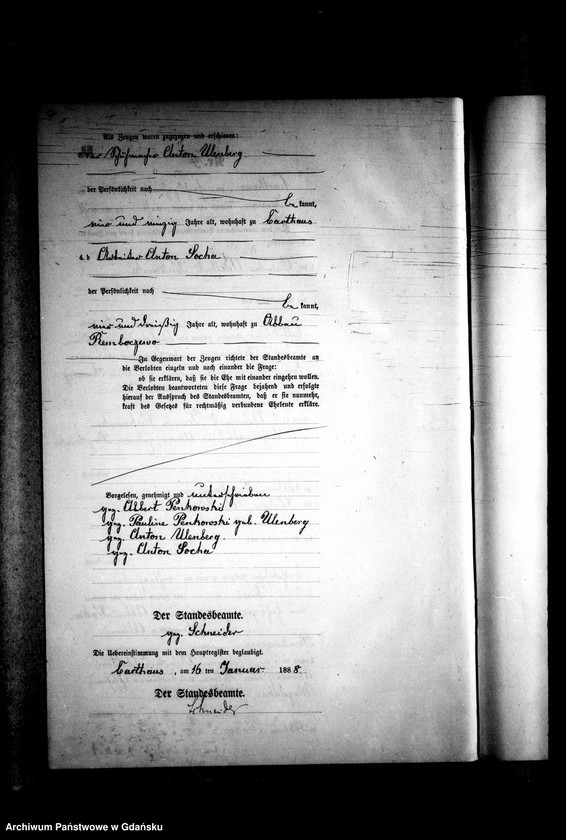 Als Zeugen waren zugezogen und erschienen:
der Schuhmacher Anton Ulenberg
der Persönlichkeit nach
be kannt,
vier und vierzig Jahre alt, wohnhaft zu Carthaus
4. d Arbeiter Anton Socha
der Persönlichkeit nach
be kannt,
vier und dreißig Jahre alt, wohnhaft zu Abbau
Remboczewo
In Gegenwart der Zeugen richtete der Standesbeamte an
die Verlobten einzeln und nach einander die Frage:
ob sie erklären, daß sie die Ehe mit einander eingehen wollen.
Die Verlobten beantworteten diese Frage bejahend und erfolgte
hierauf der Ausspruch des Standesbeamten, daß er sie nunmehr,
kraft des Gesetzes für rechtmäßig verbundene Eheleute erkläre.
Vorgelesen, genehmigt und unterschrieben
gez. Albert Penkowski
gez. Pauline Penkowski geb. Ulenberg
gez. Anton Ulenberg
gez. Anton Socha
Der Standesbeamte.
gez. Schneider
Die Uebereinstimmung mit dem Hauptregister beglaubigt.
Carthaus, am 16 ten Januar 1888.
Der Standesbeamte.
Schneider
Archiwum Państwowe w Gdańsku